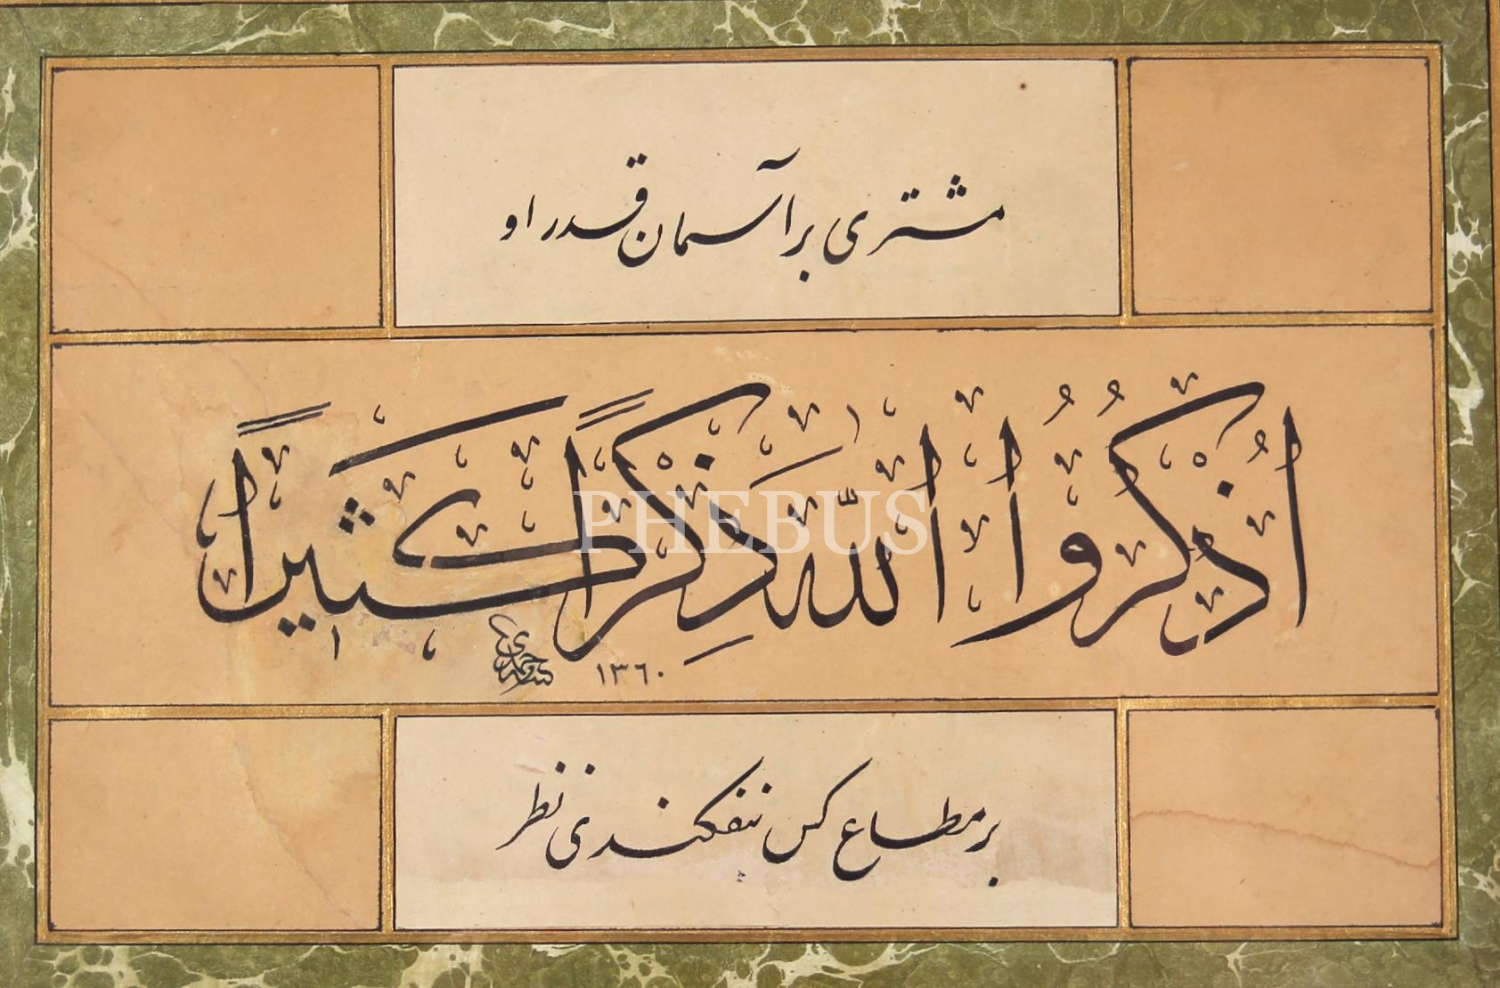 مشتری بر آسمان قدر او
اُذْكُرُوا اللّٰهَ ذِكْرًا كَثِيرًا
١٣٦٠
بر مطاع کس نیفکندی نظر
PHEBUS